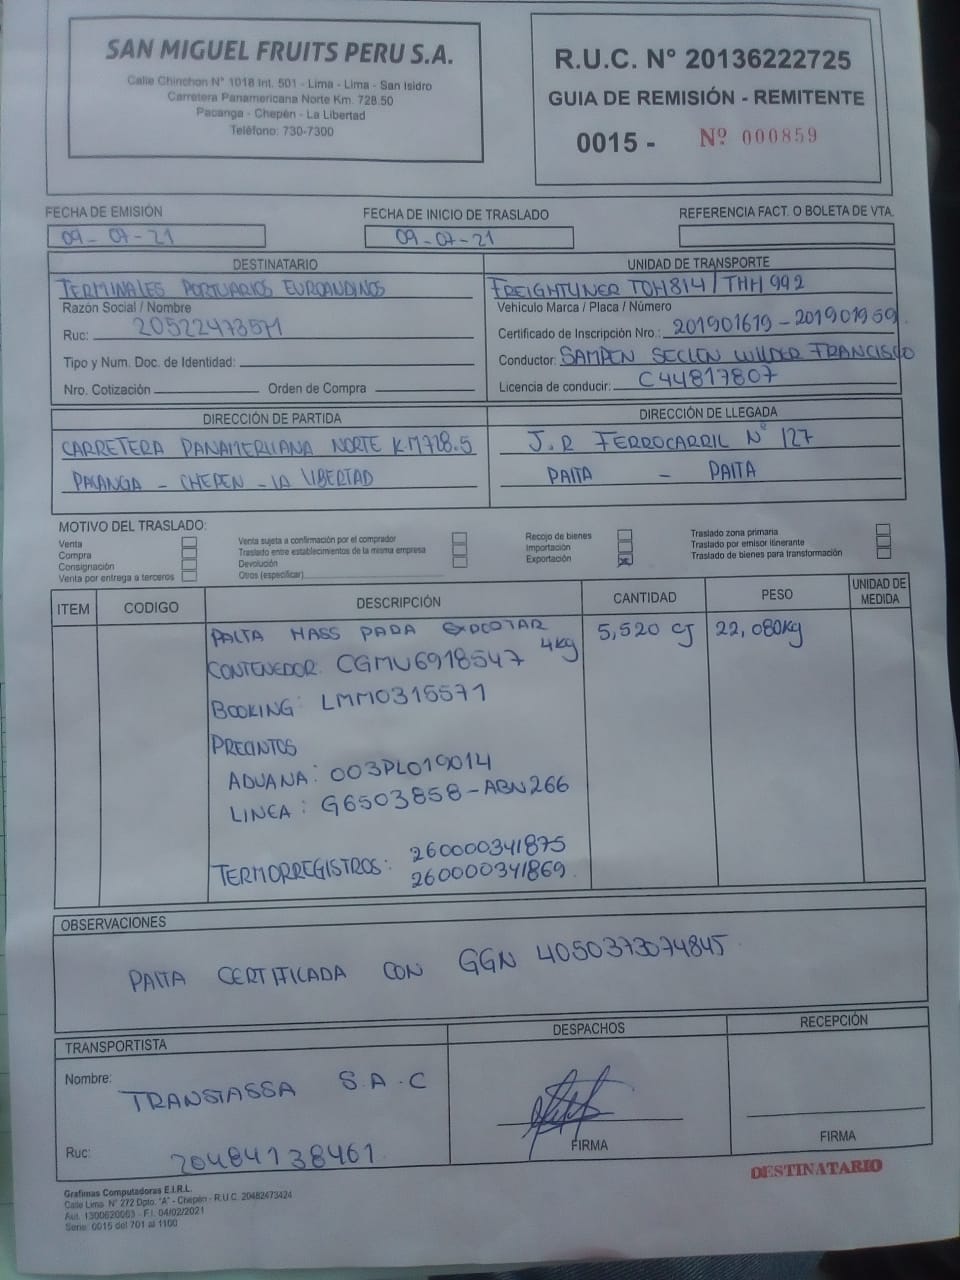 SAN MIGUEL FRUITS PERU S.A.
Calle Chinchon N° 1018 Int. 501 - Lima - Lima - San Isidro
Carretera Panamericana Norte Km. 728.50
Pacanga - Chepén - La Libertad
Teléfono: 730-7300
R.U.C. N° 20136222725
GUIA DE REMISIÓN - REMITENTE
0015 - Nº 000859
FECHA DE EMISIÓN
09-07-21
FECHA DE INICIO DE TRASLADO
09-07-21
REFERENCIA FACT. O BOLETA DE VTA.
DESTINATARIO
TERMINALES PORTUARIOS EUROANDINOS
Razón Social / Nombre
Ruc: 20522473571
Tipo y Num. Doc. de Identidad:
Nro. Cotización Orden de Compra
UNIDAD DE TRANSPORTE
FREIGHTLINER TOH814 / THH 992
Vehículo Marca / Placa / Número
Certificado de Inscripción Nro.: 201901619 - 201901959
Conductor: SAMPEN SECLEN WILDER FRANCISCO
Licencia de conducir: C44817807
DIRECCIÓN DE PARTIDA
CARRETERA PANAMERICANA NORTE KM728.5
PACANGA - CHEPEN - LA LIBERTAD
DIRECCIÓN DE LLEGADA
J.R FERROCARRIL Nº 127
PAITA - PAITA
MOTIVO DEL TRASLADO:
Venta
Compra
Consignación
Venta por entrega a terceros
Venta sujeta a confirmación por el comprador
Traslado entre establecimientos de la misma empresa
Devolución
Otros (especificar)
Recojo de bienes
Importación
Exportación
Traslado zona primaria
Traslado por emisor itinerante
Traslado de bienes para transformación
ITEM CODIGO DESCRIPCIÓN CANTIDAD PESO UNIDAD DE MEDIDA
PALTA HASS PARA EXPORTAR 4kg 5,520 CJ 22,080Kg
CONTENEDOR: CGMU6918547
BOOKING: LMM0315571
PRECINTOS
ADUANA: 003PL019014
LINEA: G6503858-ABN266
TERMORREGISTROS: 260000341875
260000341869
OBSERVACIONES
PALTA CERTIFICADA CON GGN 4050373074845
TRANSPORTISTA
Nombre: TRANSTASSA S.A.C
Ruc: 20484138461
DESPACHOS
FIRMA
RECEPCIÓN
FIRMA
DESTINATARIO
Grafimas Computadoras E.I.R.L.
Calle Lima N° 272 Dpto. "A" - Chepén - R.U.C. 20482473424
Aut. 1300620063 - F.I. 04/02/2021
Serie: 0015 del 701 al 1100